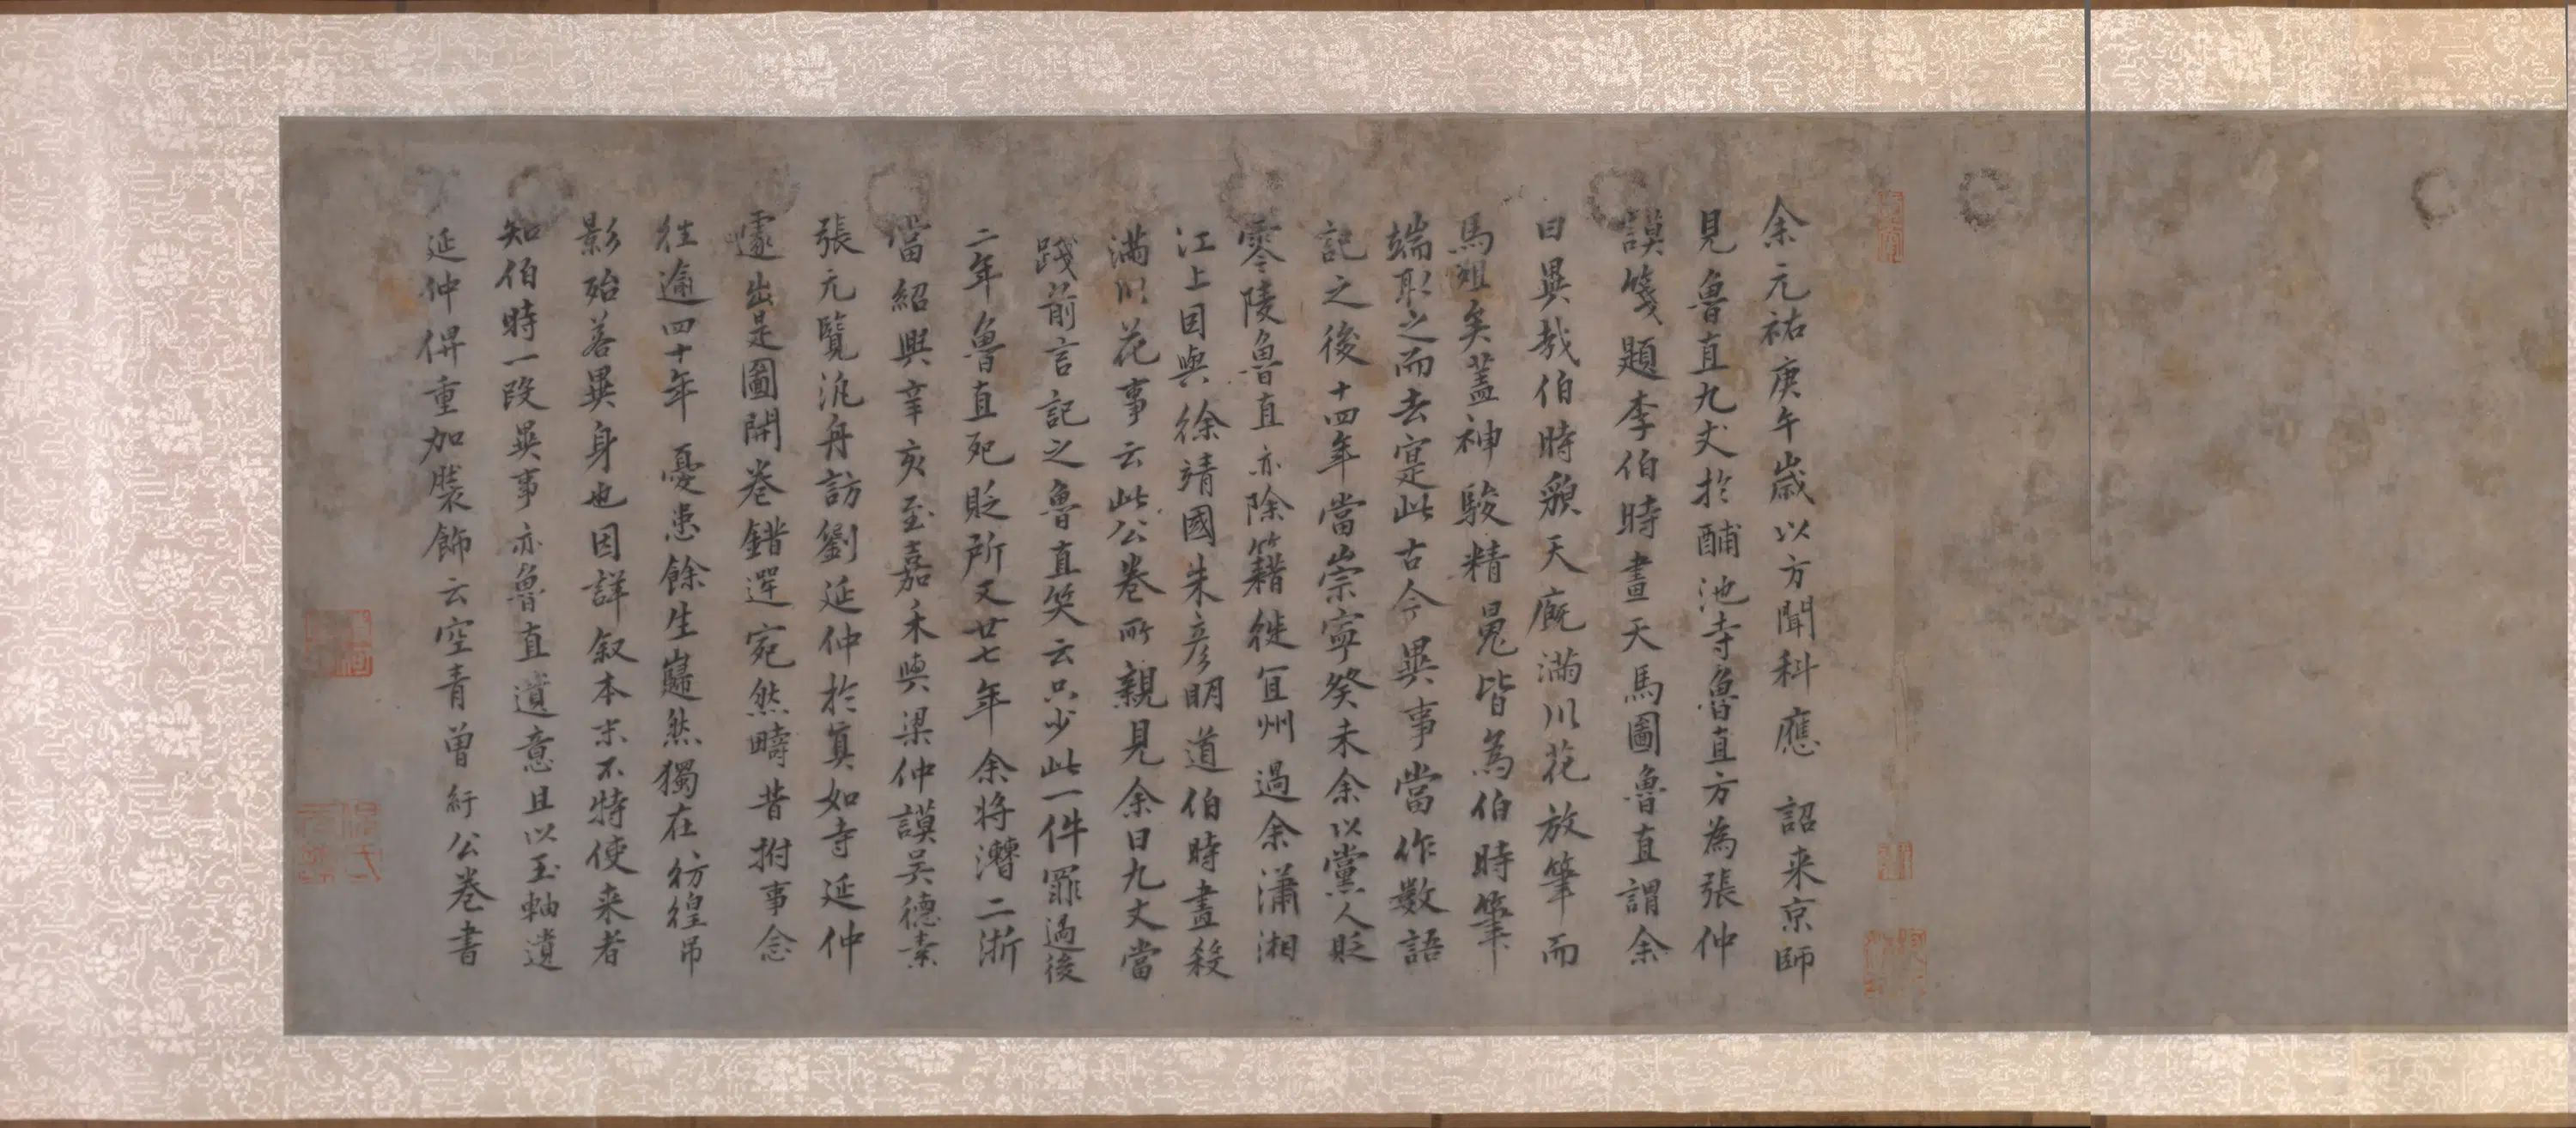 余元祐庚午歲以方聞科應 詔来京師
見魯直九丈於酺池寺魯直方為張仲
謨箋題李伯時畫天馬圖魯直謂余
曰異哉伯時貌天厩滿川花放筆而
馬殂矣蓋神駿精䰟皆為伯時筆
端取之而去寔此古今異事當作數語
記之後十四年當崇寧癸未余以黨人貶
零陵魯直亦除籍徙宜州過余瀟湘
江上因與徐靖國朱彦明道伯時畫殺
滿川花事云此公卷所親見余曰九丈當
踐前言記之魯直笑云只少此一件罪過後
二年魯直死貶所又廿七年余将漕二浙
當紹興辛亥至嘉禾與梁仲謨吴德素
張元覽泛舟訪劉延仲於真如寺延仲
遽出是圖開卷錯愕宛然疇昔拊事念
往逾四十年憂患餘生巋然獨在彷徨吊
影殆若異身也因詳叙本末不特使来者
知伯時一段異事亦魯直遺意且以玉軸遺
延仲俾重加褾飾云空青曾紆公卷書